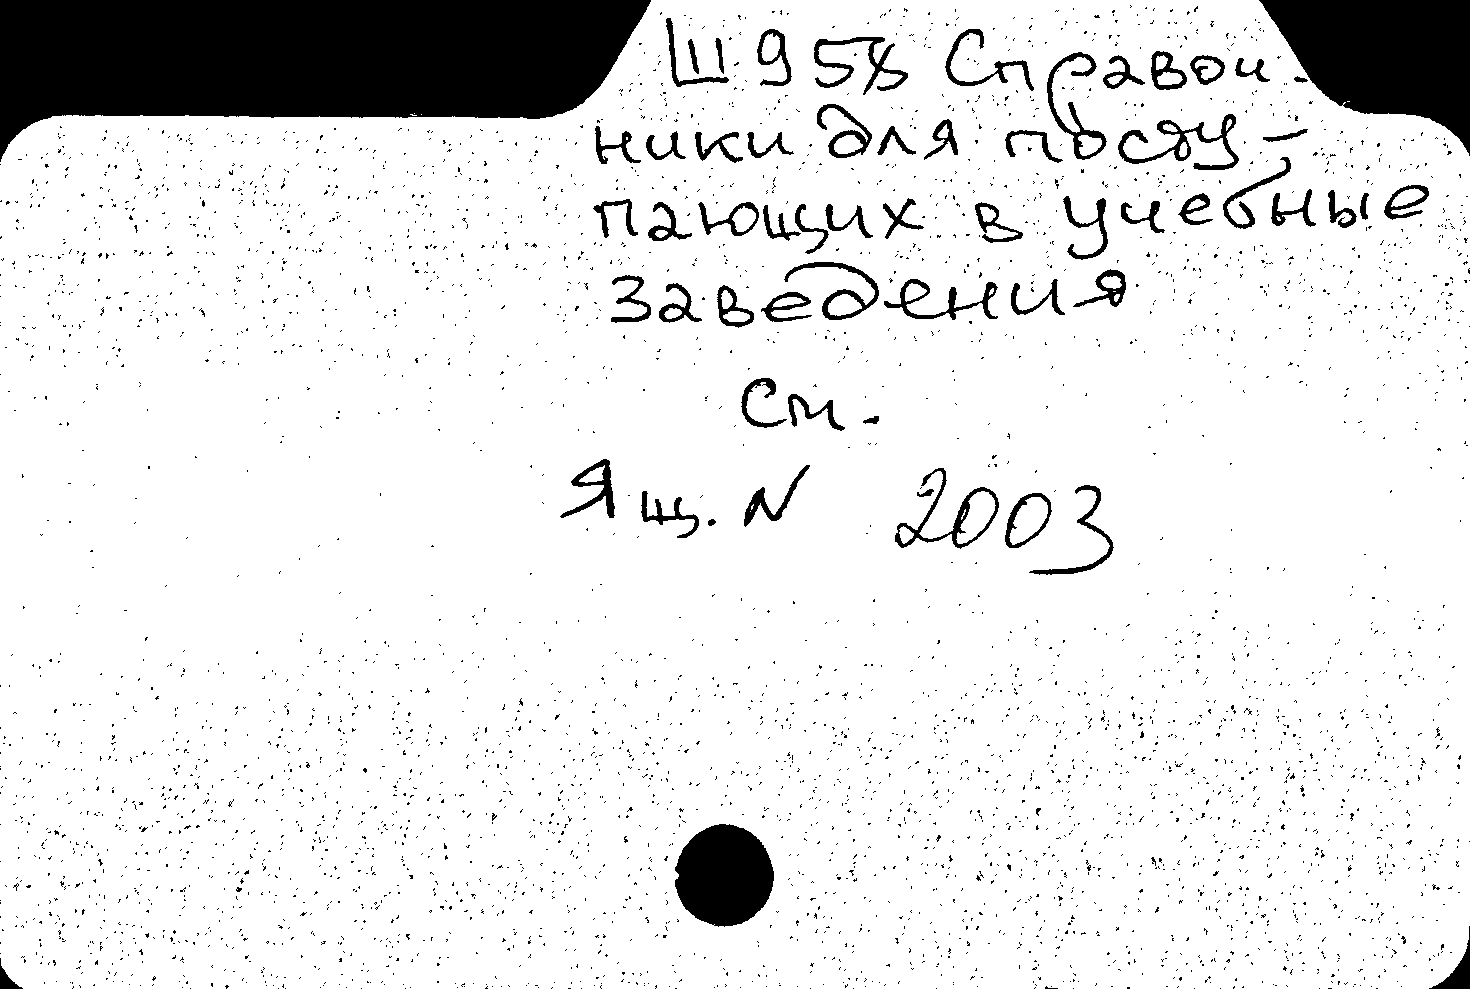 Ш95% Справоч-
ники для посту-
пающих в учебные
заведения
См.
Ящ. N 2003